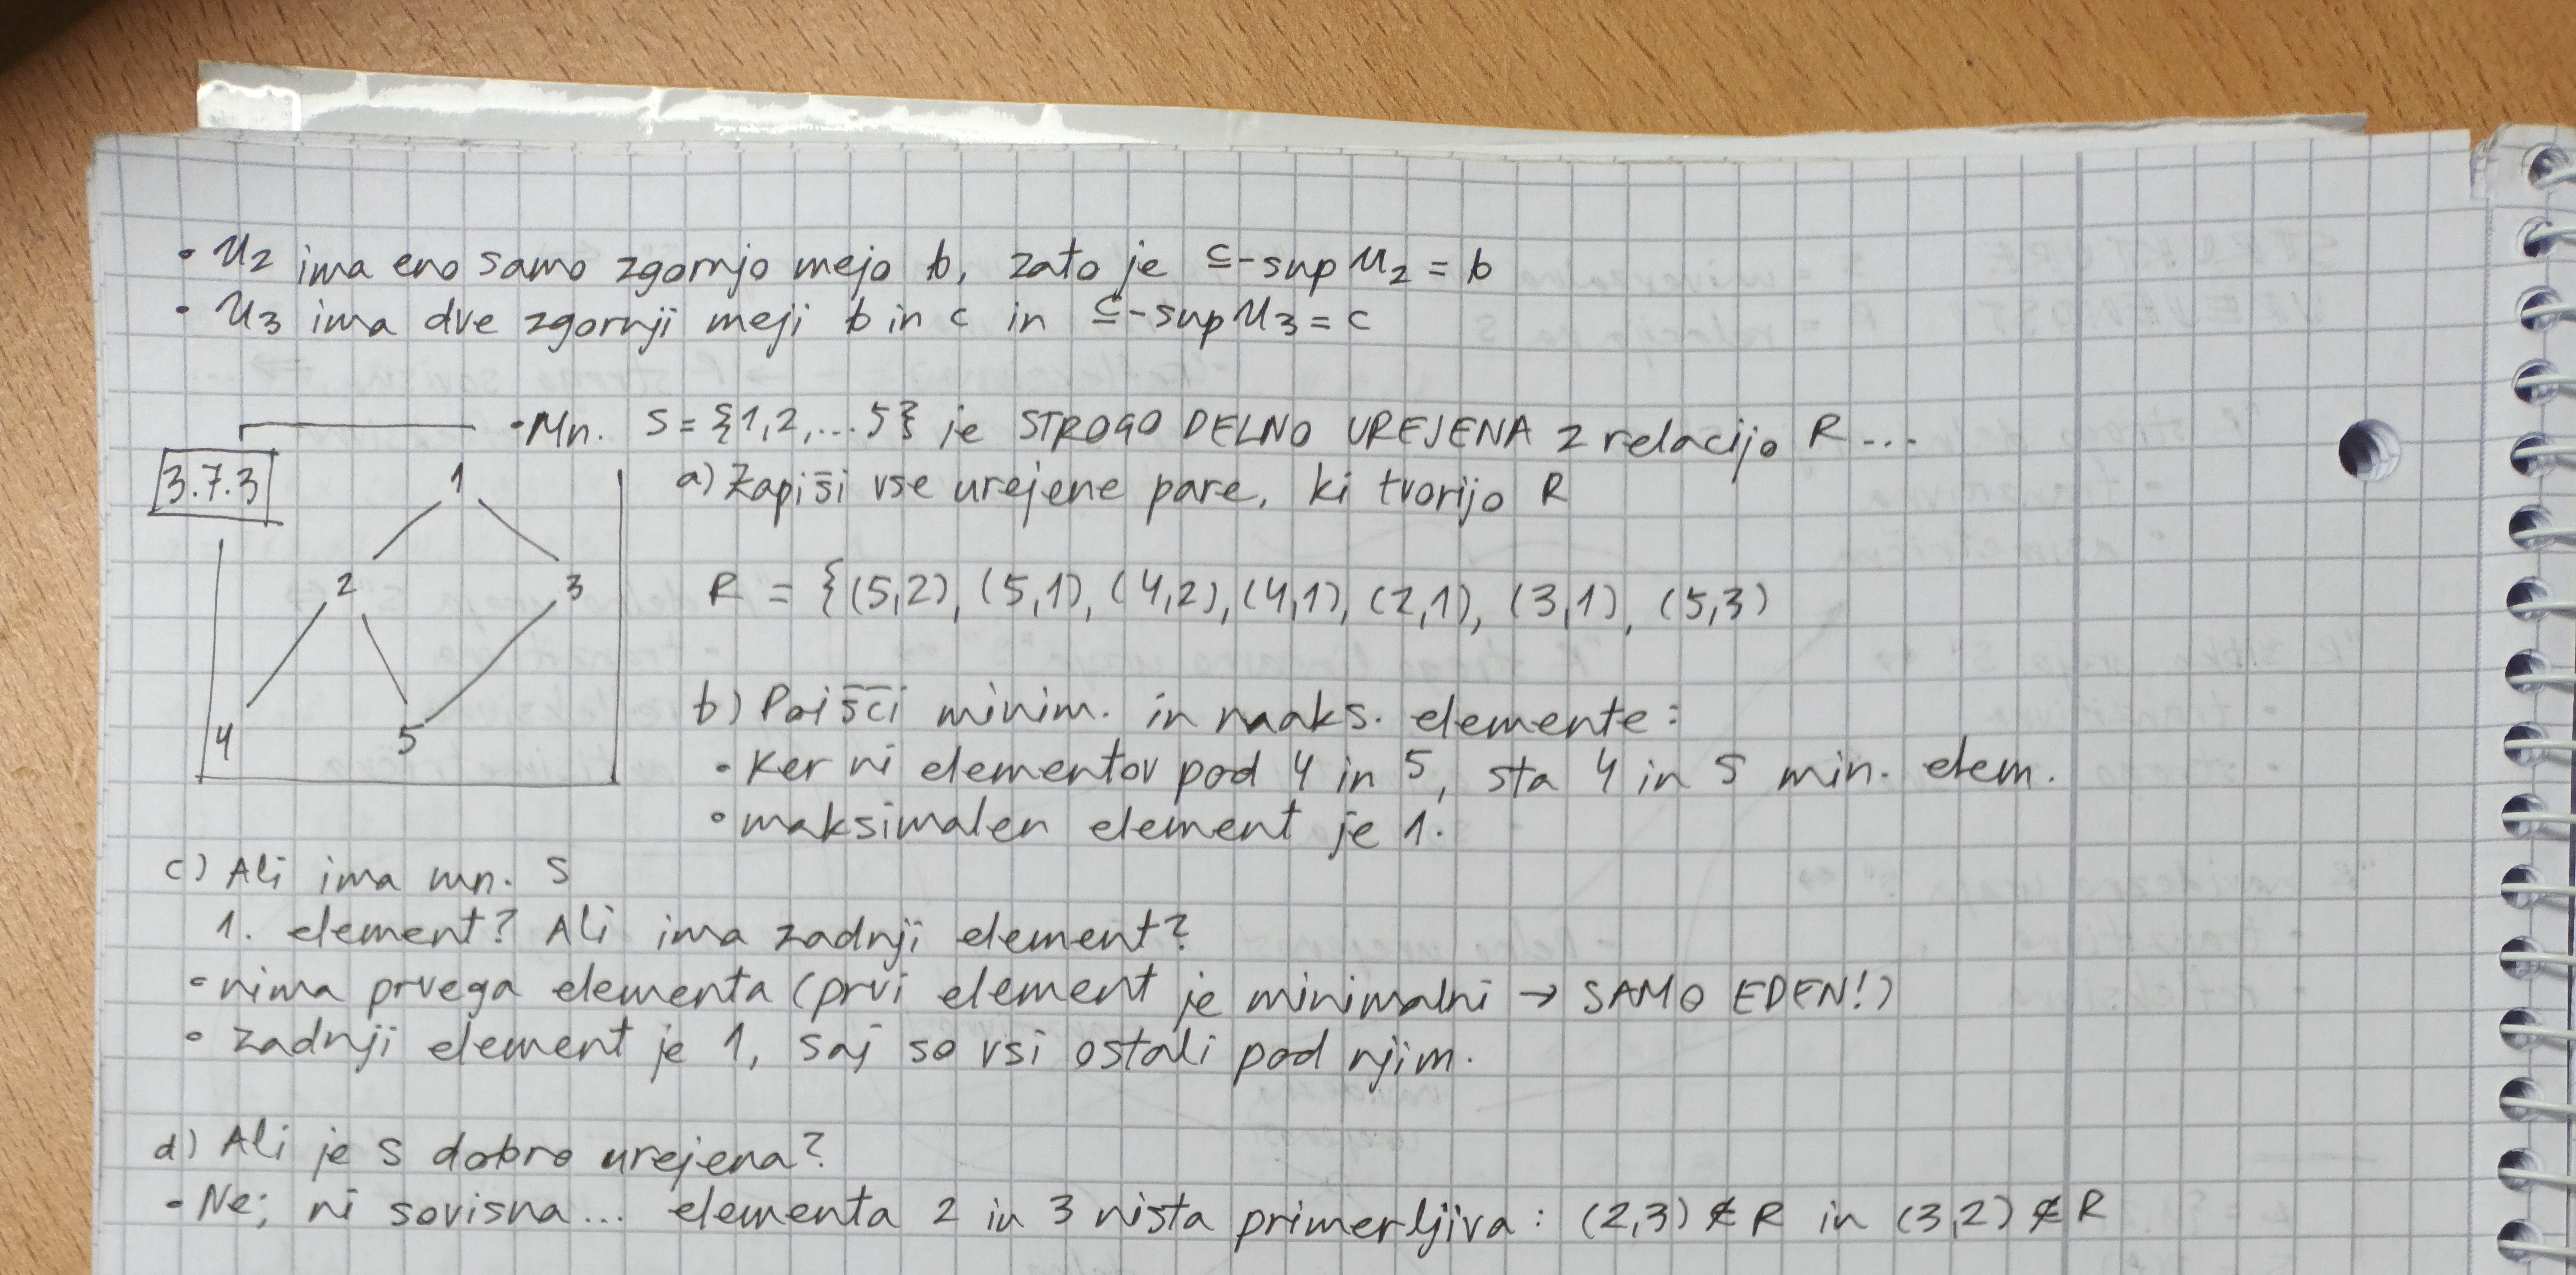 • U2 ima eno samo zgornjo mejo b, zato je ⊆-sup U2 = b
• U3 ima dve zgornji meji b in c in ⊆-sup U3 = c
• Mn. S = {1,2,...5} je STROGO DELNO UREJENA z relacijo R...
3.7.3
a) Zapiši vse urejene pare, ki tvorijo R
1
2 3
4 5
R = {(5,2), (5,1), (4,2), (4,1), (2,1), (3,1), (5,3)
b) Poišči minim. in maks. elemente:
• Ker ni elementov pod 4 in 5, sta 4 in 5 min. elem.
• maksimalen element je 1.
c) Ali ima mn. S
1. element? Ali ima zadnji element?
• nima prvega elementa (prvi element je minimalni → SAMO EDEN!)
• zadnji element je 1, saj so vsi ostali pod njim.
d) Ali je S dobro urejena?
• Ne; ni sovisna... elementa 2 in 3 nista primerljiva: (2,3) ∉ R in (3,2) ∉ R